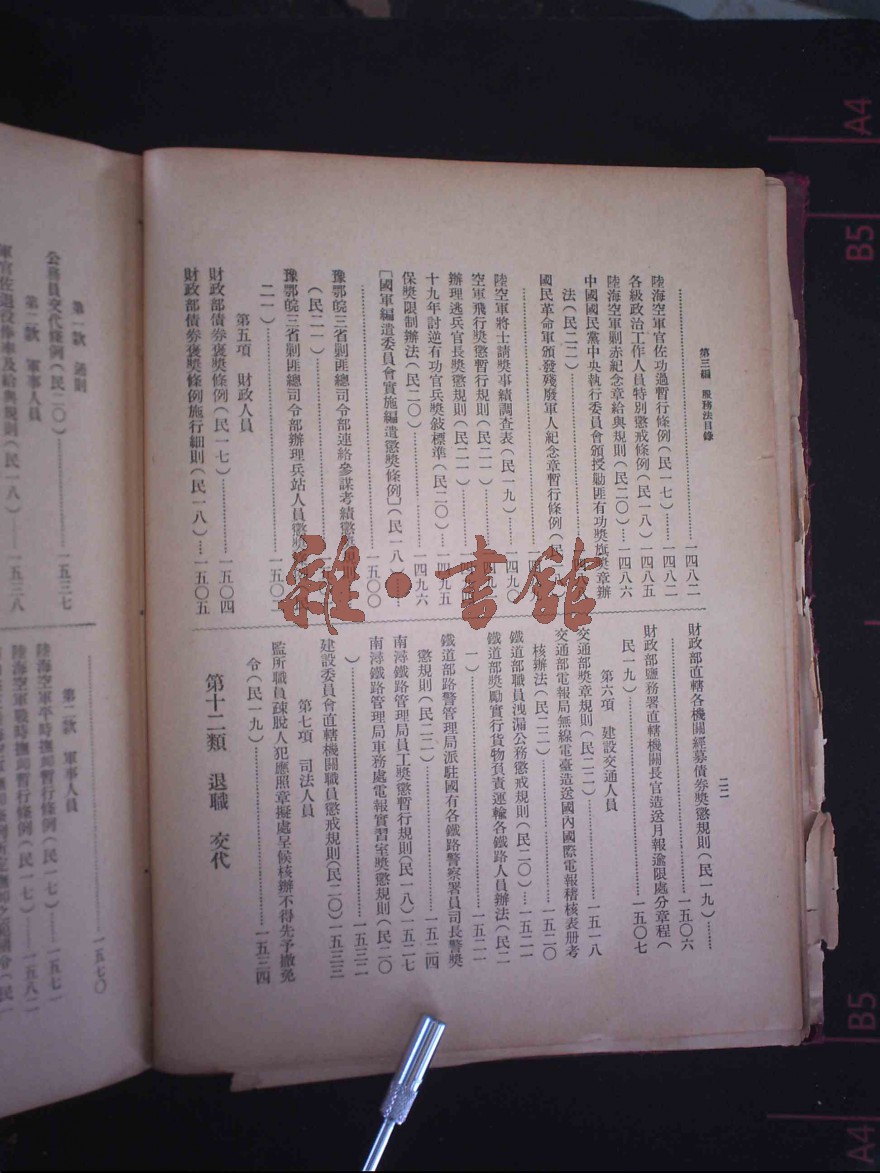 第三編 服務法目錄
二二
………一四八二
陸海空軍官佐功過暫行條例(民一七)………一四八二
各級政治工作人員特別懲戒條例(民一八)一四八五
陸海空軍剿赤紀念章給與規則(民二〇)…一四八六
中國國民黨中央執行委員會頒授勦匪有功獎旗獎章辦
法(民二二)………一四八
國民革命軍頒發殘廢軍人紀念章暫行條例(民一八
陸空軍將士請獎事績調查表(民一九)………一四九〇
空軍飛行獎懲暫行規則(民二一)
辦理逃兵官長獎懲規則(民二一)
十九年討逆有功官兵獎敍標準(民二〇)一四九五
保獎限制辦法(民二〇)………一四九六
〔國軍編遣委員會實施編遣懲獎條例〕(民一八)
………一五〇〇
豫鄂皖三省剿匪總司令部連絡參謀考績懲
(民二一)
豫鄂皖三省剿匪總司令部辦理兵站人員懲獎
二一)………一五〇
第五項 財政人員
財政部債券褒獎條例(民一七)………一五〇四
財政部債券褒獎條例施行細則(民一八)…一五〇五
財政部直轄各機關經募債券獎懲規則(民一九)……
………一五〇六
財政部鹽務署直轄機關長官造送月報逾限處分章程(
民一九)………一五〇七
第六項 建設交通人員
交通部獎章規則(民二二)………一五一八
交通部電報局無線電臺造送國內國際電報稽核表册考
核辦法(民二二)………一五二〇
鐵道部職員洩漏公務懲戒規則(民二〇)…一五二一
鐵道部獎勵實行貨物負責運輸各鐵路人員辦法(民二
一)………一五二一
鐵道部路警管理局派駐國有各鐵路警察署員司長警獎
懲規則(民二二)………一五二四
南潯鐵路管理局員工獎懲暫行規則(民一八)一五二七
南潯鐵路管理局車務處電報實習室獎懲規則(民二〇
)………一五三二
建設委員會直轄機關職員懲戒規則(民二〇)一五三三
第七項 司法人員
監所職員疎脫人犯應照章擬處呈候核辦不得先予撤免
令(民一九)………一五三四
第十二類 退職 交代
第一款 通則
公務員交代條例(民二〇)………一五三七
第二款 軍事人員
軍官佐退役俸率及給與規則(民一八)……一五三八
………一五七〇
第二款 軍事人員
陸海空軍平時撫卹暫行條例(民一七)……一五七一
陸海空軍戰時撫卹暫行條例(民一七)……一五八二
雜·書館
A4
B5
B5
A4